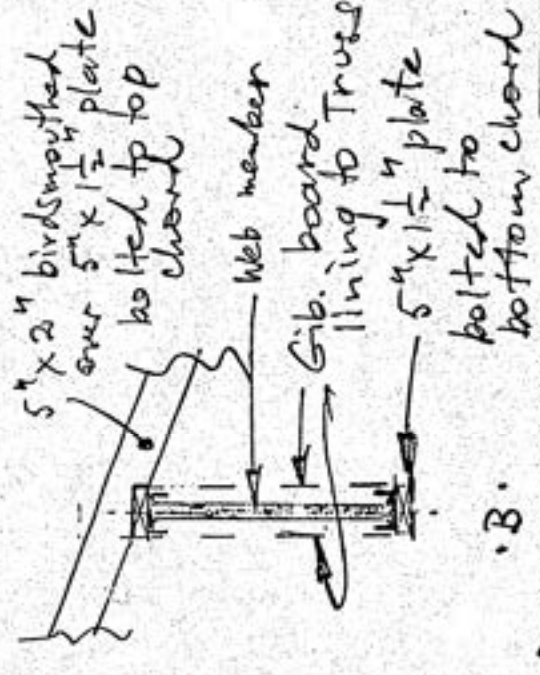 5" x 2" birdsmouthed
over 5" x 1½" plate
bolted to top
chord
Web member
Gib. board
lining to Truss
5" x 1½" plate
bolted to
bottom chord
· B ·